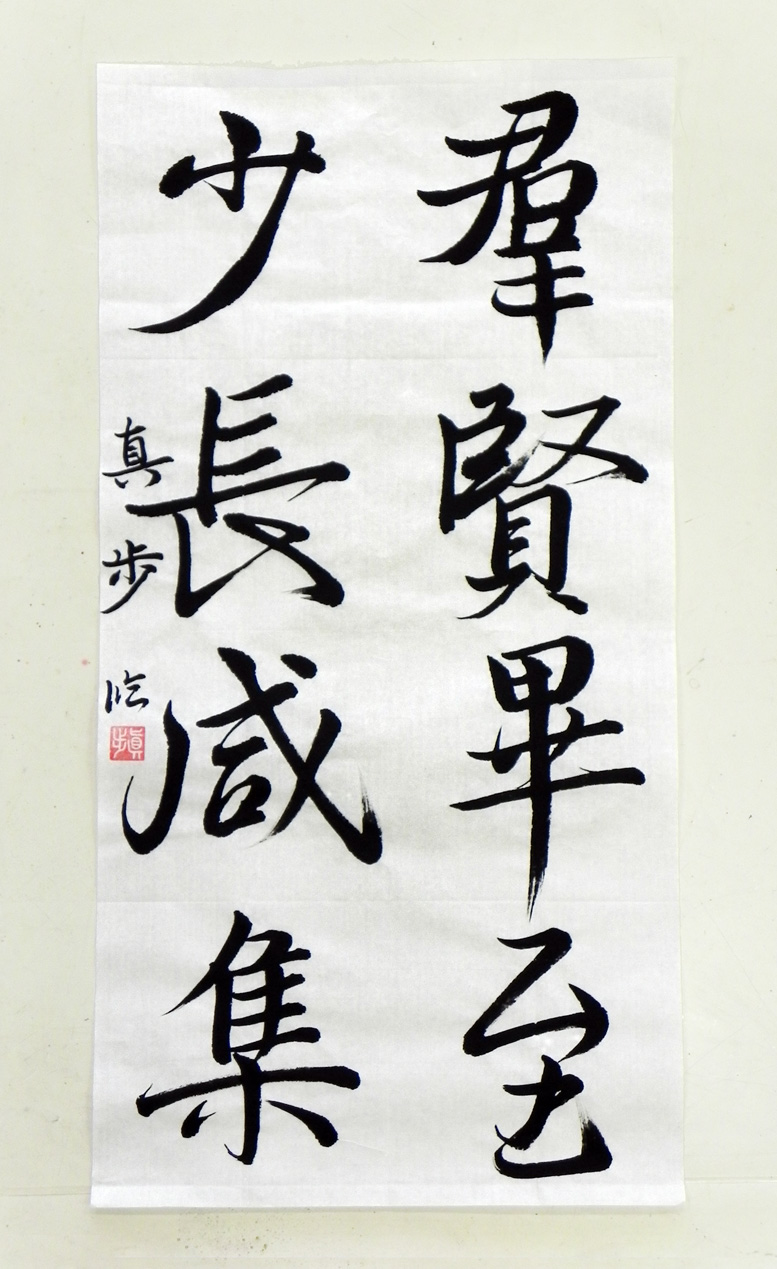 羣賢畢至
少長咸集
真歩臨